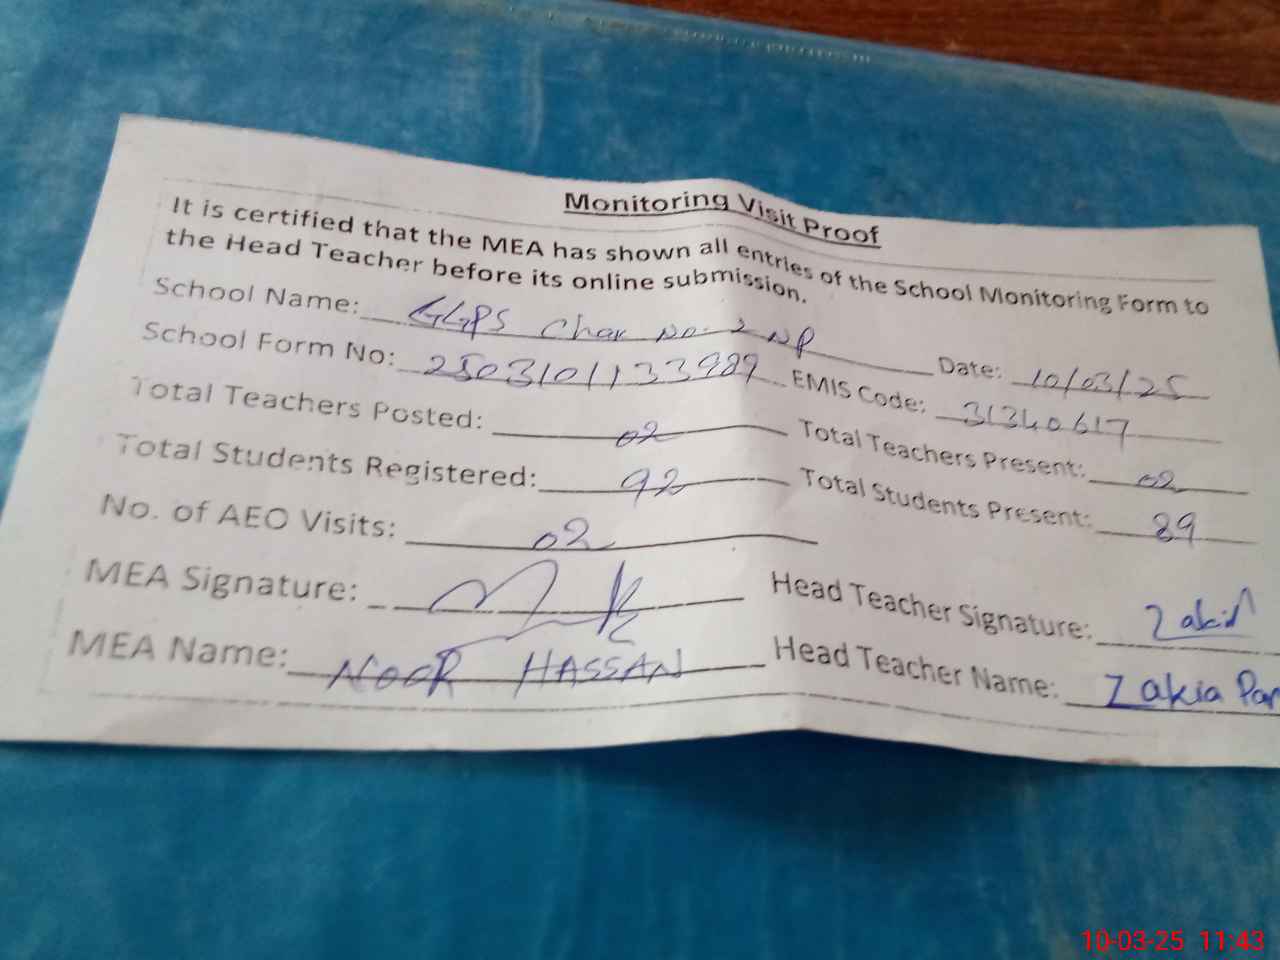 Monitoring Visit Proof
It is certified that the MEA has shown all entries of the School Monitoring Form to
the Head Teacher before its online submission.
School Name: GGPS Chak No. 2 NP Date: 10/03/25
School Form No: 2503101133989 EMIS Code: 31340617
Total Teachers Posted: 02 Total Teachers Present: 02
Total Students Registered: 92 Total Students Present: 89
No. of AEO Visits: 02
MEA Signature: Head Teacher Signature: Zakia
MEA Name: NOOR HASSAN Head Teacher Name: Zakia Par
10-03-25 11:43